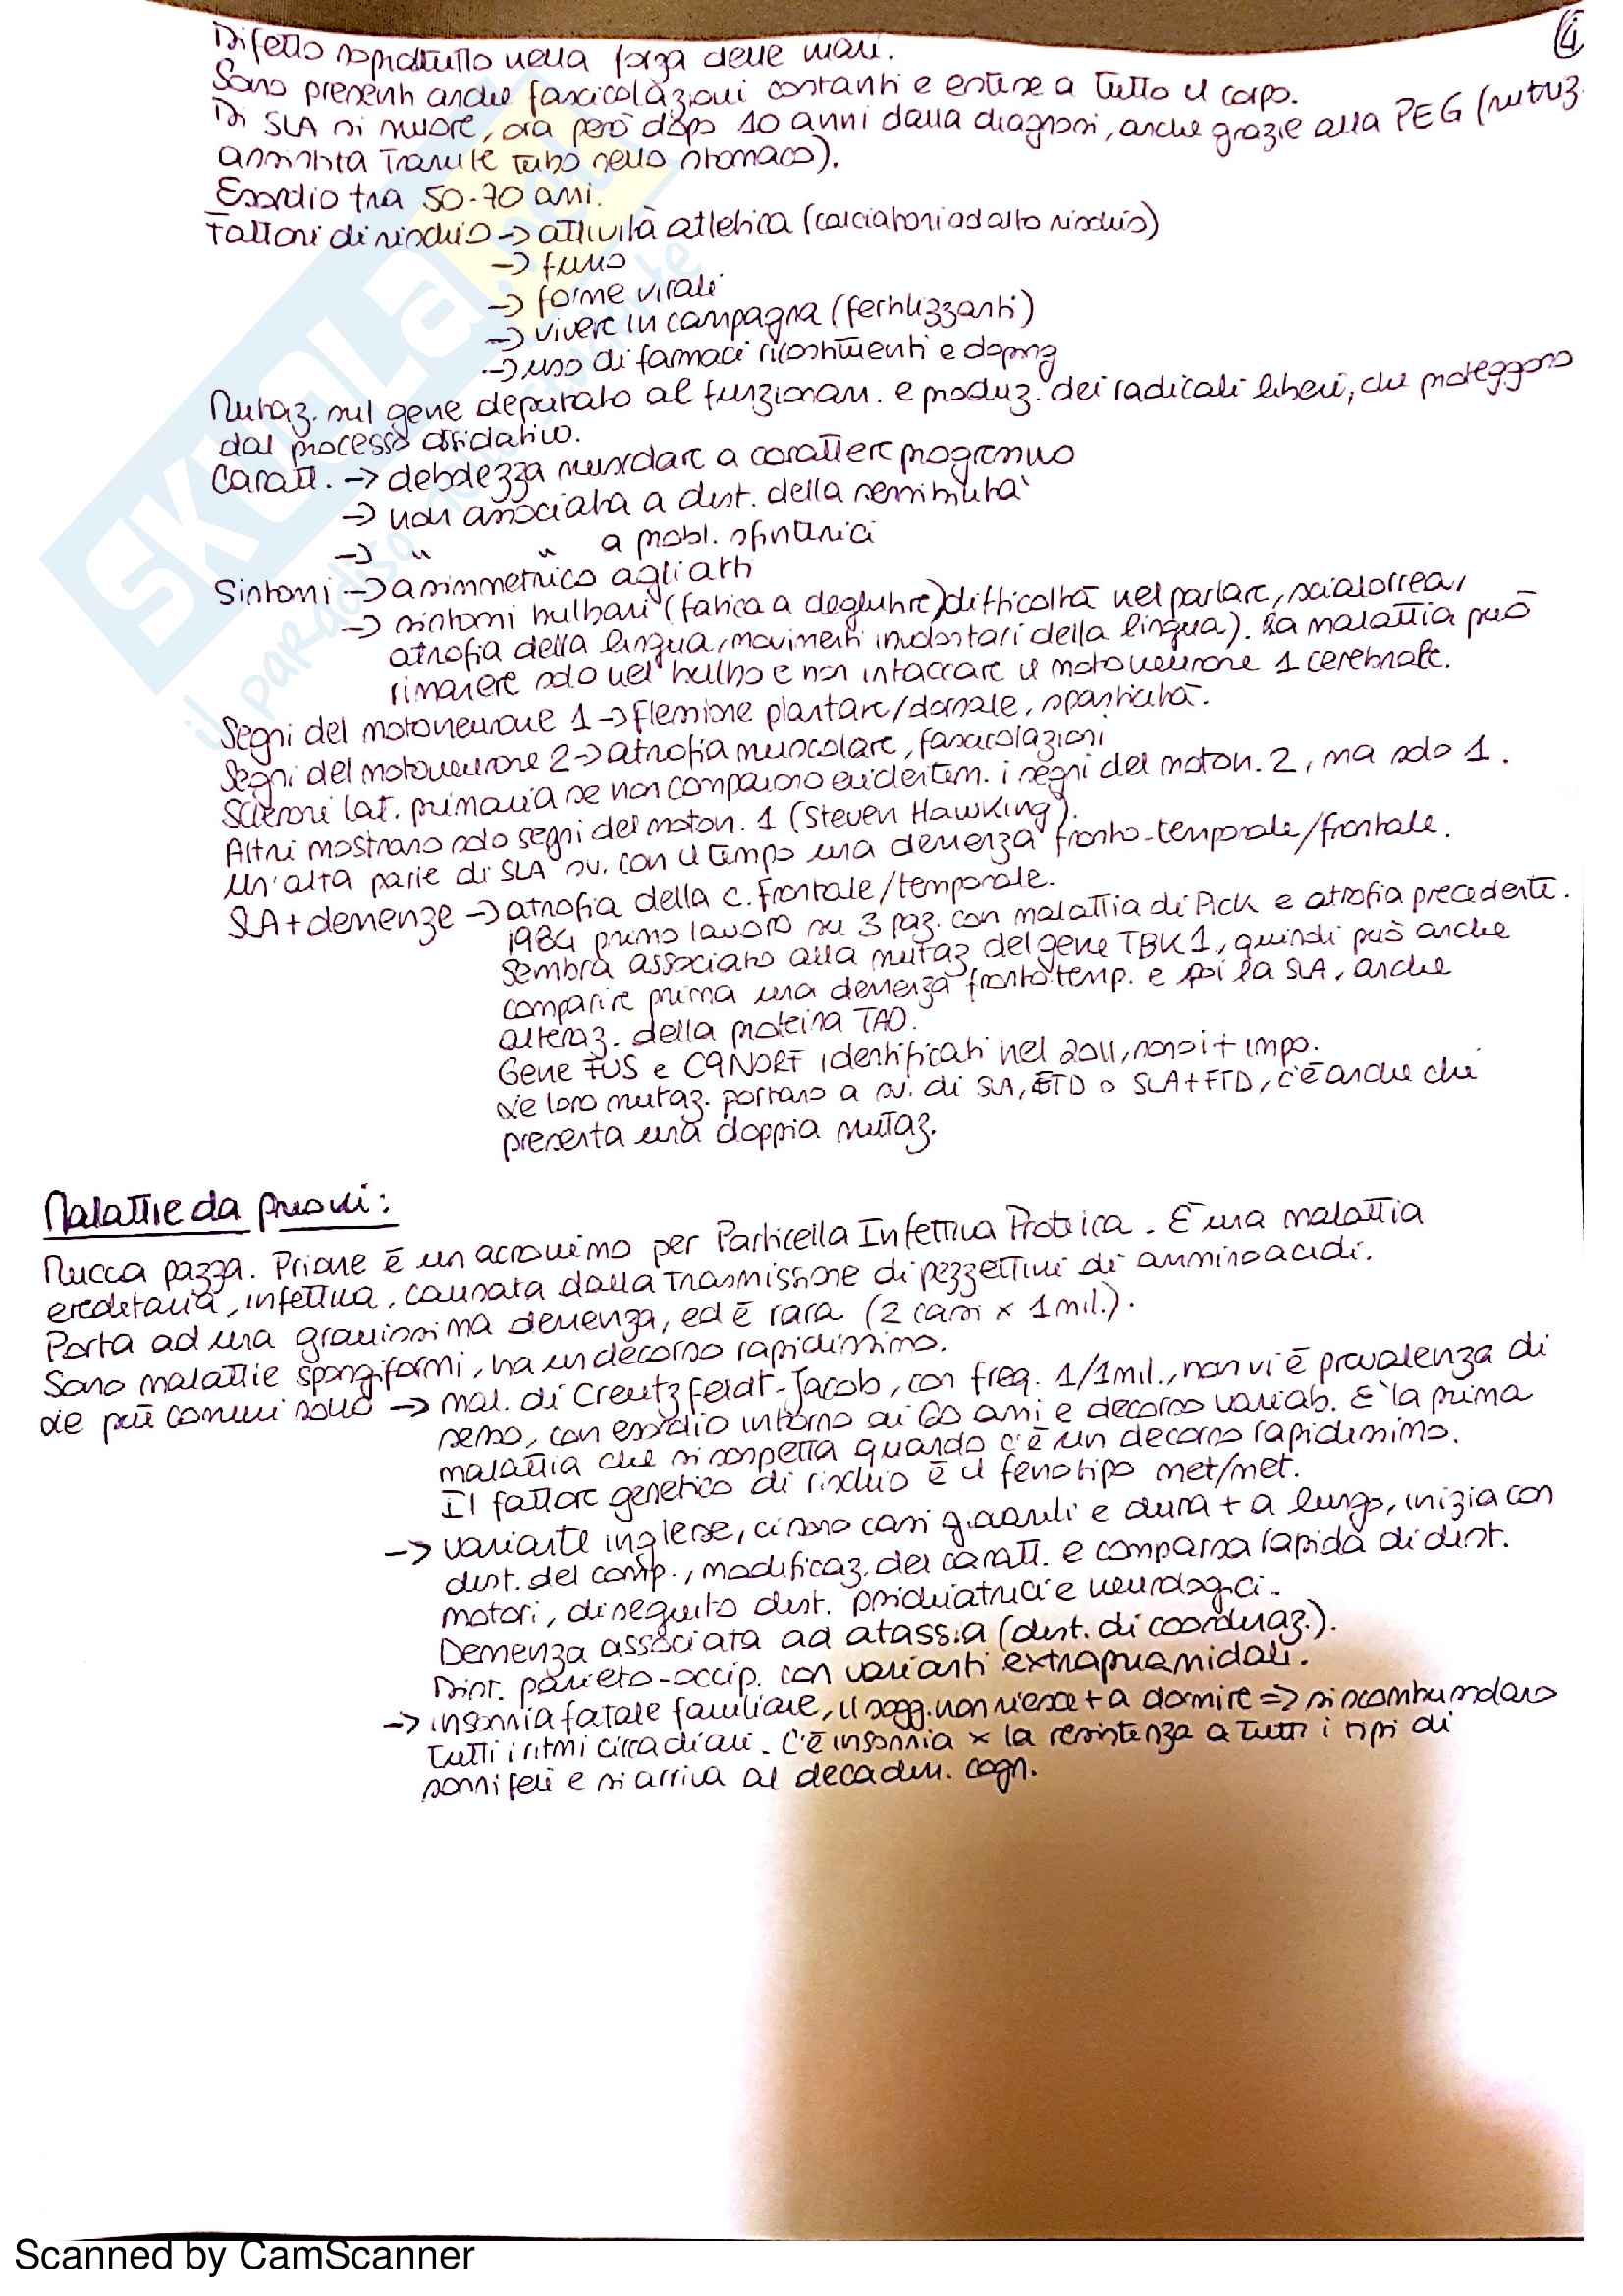 4
Difetto soprattutto nella forza delle mani.
Sono presenti anche fascicolazioni costanti e estese a tutto il corpo.
Di SLA si muore, ora però dopo 10 anni dalla diagnosi, anche grazie alla PEG (nutriz.
assistita tramite tubo nello stomaco).
Esordio tra 50-70 anni.
Fattori di rischio → attività atletica (calciatori ad alto rischio)
→ fumo
→ forme virali
→ vivere in campagna (fertilizzanti)
→ uso di farmaci ricostituenti e doping
Mutaz. sul gene deputato al funzionam. e produz. dei radicali liberi, che proteggono
dal processo ossidativo.
Caratt. → debolezza muscolare a carattere progressivo
→ non associata a dist. della sensibilità
→ " " a probl. sfinterici
Sintomi → asimmetrico agli arti
→ sintomi bulbari (fatica a deglutire) difficoltà nel parlare, scialorrea,
atrofia della lingua, movimenti involontari della lingua). La malattia può
rimanere solo nel bulbo e non intaccare il motoneurone 1 cerebrale.
Segni del motoneurone 1 → Flessione plantare/dorsale, spasticità.
Segni del motoneurone 2 → atrofia muscolare, fascicolazioni
Sclerosi lat. primaria se non compaiono evidentem. i segni del moton. 2, ma solo 1.
Altri mostrano solo segni del moton. 1 (Steven Hawking).
Un'alta parte di SLA sv. con il tempo una demenza fronto-temporale/frontale.
SLA + demenze → atrofia della c. frontale/temporale.
1984 primo lavoro su 3 paz. con malattia di Pick e atrofia precedente.
Sembra associato alla mutaz del gene TBK1, quindi può anche
comparire prima una demenza fronto temp. e poi la SLA, anche
alteraz. della proteina TAO.
Gene FUS e C9NORF identificati nel 2011, sono i + impo.
Le loro mutaz. portano a sv. di SLA, FTD o SLA + FTD, c'è anche chi
presenta una doppia mutaz.
Malattie da prioni:
Mucca pazza. Prione è un acronimo per Particella Infettiva Proteica. È una malattia
ereditaria, infettiva, causata dalla trasmissione di pezzettini di amminoacidi.
Porta ad una gravissima demenza, ed è rara (2 casi x 1 mil.).
Sono malattie spongiformi, ha un decorso rapidissimo.
Le più comuni sono → mal. di Creutzfeldt-Jacob, con freq. 1/1mil., non vi è prevalenza di
sesso, con esordio intorno ai 60 anni e decorso variab. È la prima
malattia che si sospetta quando c'è un decorso rapidissimo.
Il fattore genetico di rischio è il fenotipo met/met.
→ variante inglese, ci sono casi giovanili e dura + a lungo, inizia con
dist. del comp., modificaz. del caratt. e comparsa rapida di dist.
motori, di seguito dist. psichiatrici e neurologici.
Demenza associata ad atassia (dist. di coordinaz.).
Dist. parieto-occip. con varianti extrapiramidali.
→ insonnia fatale familiare, il sogg. non riesce + a dormire => si scombussolano
tutti i ritmi circadiani. C'è insonnia x la resistenza a tutti i tipi di
sonniferi e si arriva al decadim. cogn.
SKUOLA.net
il paradiso dello studente
Scanned by CamScanner